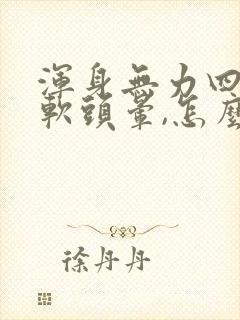 渾身無力四
軟頭暈,怎麼
徐丹丹